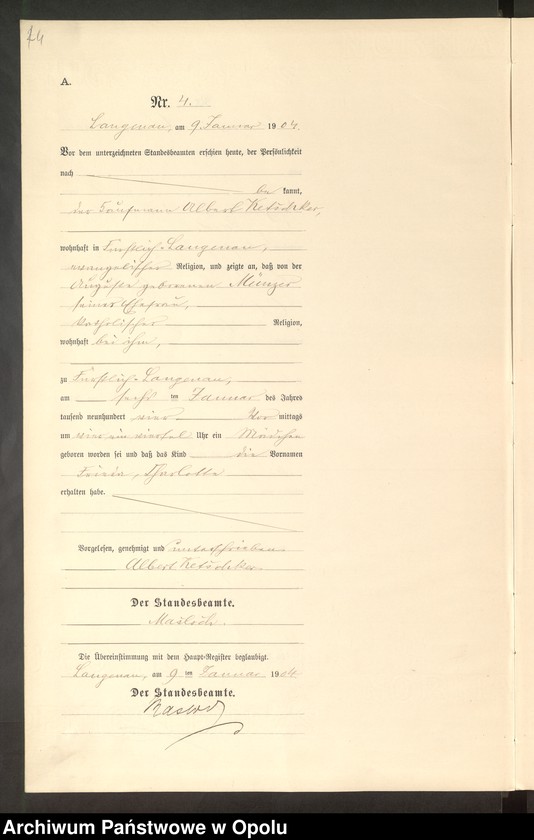 A.
Nr. 4.
Langenau, am 9. Januar 1904
Vor dem unterzeichneten Standesbeamten erschien heute, der Persönlichkeit
nach
be kannt,
der Kaufmann Albert
wohnhaft in Fürstlich-Langenau,
evangelischer Religion, und zeigte an, daß von der
Auguste geborenen Münzer
seiner Ehefrau,
katholischer Religion,
wohnhaft bei ihm,
zu Fürstlich-Langenau,
am sechs ten Januar des Jahres
tausend neunhundert vier Vor mittags
um vier ein viertel Uhr ein Mädchen
geboren worden sei und daß das Kind die Vornamen
Frieda, Charlotte
erhalten habe.
Vorgelesen, genehmigt und unterschrieben
Albert
Der Standesbeamte.
Die Übereinstimmung mit dem Haupt-Register beglaubigt.
Langenau, am 9 ten Januar 1904.
Der Standesbeamte.
Archiwum Państwowe w Opolu